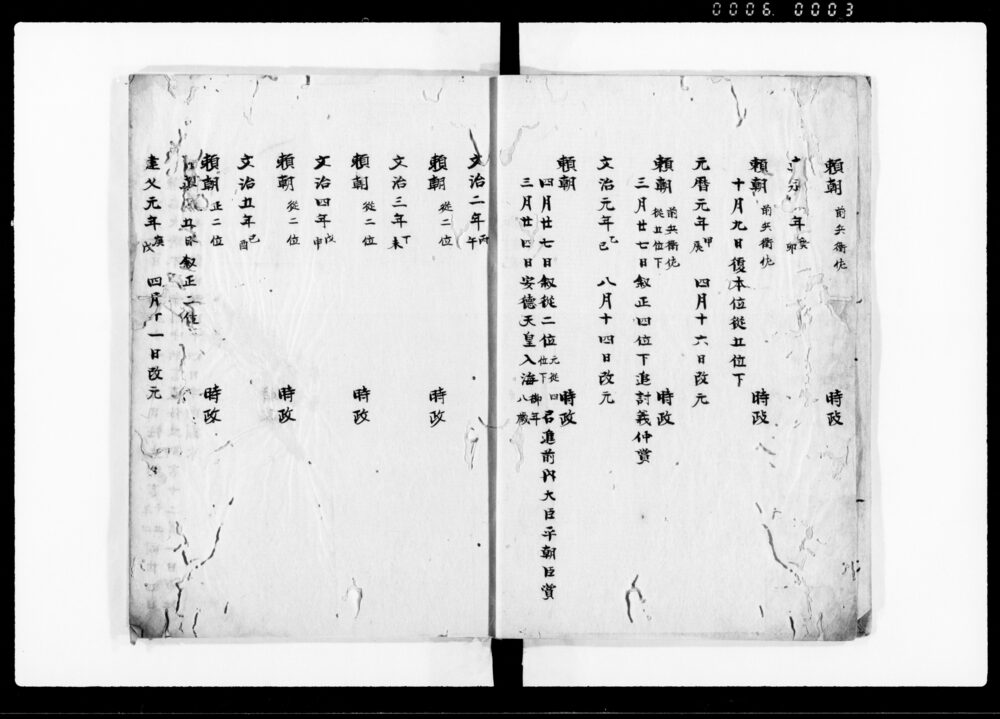 0006 0003
頼朝 前兵衛佐 時政
元年 癸卯
頼朝 前兵衛佐 時政
十月九日復本位從五位下
元暦元年 甲辰 四月十六日改元
頼朝 前兵衛佐 從五位下 時政
三月廿七日叙正四位下追討義仲賞
文治元年 乙巳 八月十四日改元
頼朝 時政
四月廿七日叙從二位 元從四位下 召進前内大臣平朝臣賞
三月廿四日安徳天皇入海 御年八歳
文治二年 丙午
頼朝 從二位 時政
文治三年 丁未
頼朝 從二位 時政
文治四年 戊申
頼朝 從二位 時政
文治五年 己酉
頼朝 正二位 時政
五日叙正二位
建久元年 庚戌 四月十一日改元